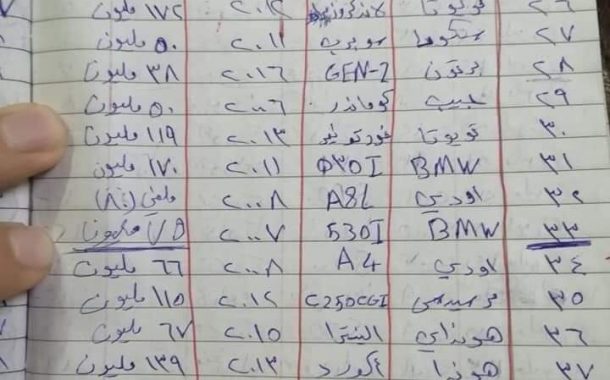 ٢٦ تويوتا لاندكروزر ٢٠١٢ ١٧٢ مليون
٢٧ سكودا سوبرب ٢٠١١ ٥٠ مليون
٢٨ بروتون GEN-2 ٢٠١٦ ٣٨ مليون
٢٩ جيب كوماندر ٢٠٠٦ ٥٠ مليون
٣٠ تويوتا فورتونر ٢٠١٣ ١١٩ مليون
٣١ BMW ٥٣٥I ٢٠١١ ١٧٠ مليون
٣٢ اودي A8L ٢٠٠٨
٣٣ BMW 530I ٢٠٠٧ ٧٥ مليون
٣٤ اودي A4 ٢٠٠٨ ٦٦ مليون
٣٥ مرسيدس C250CGI ٢٠١٢ ١١٥ مليون
٣٦ هونداي النترا ٢٠١٥ ٦٧ مليون
٣٧ هوندا اكورد ٢٠١٣ ١٣٩ مليون